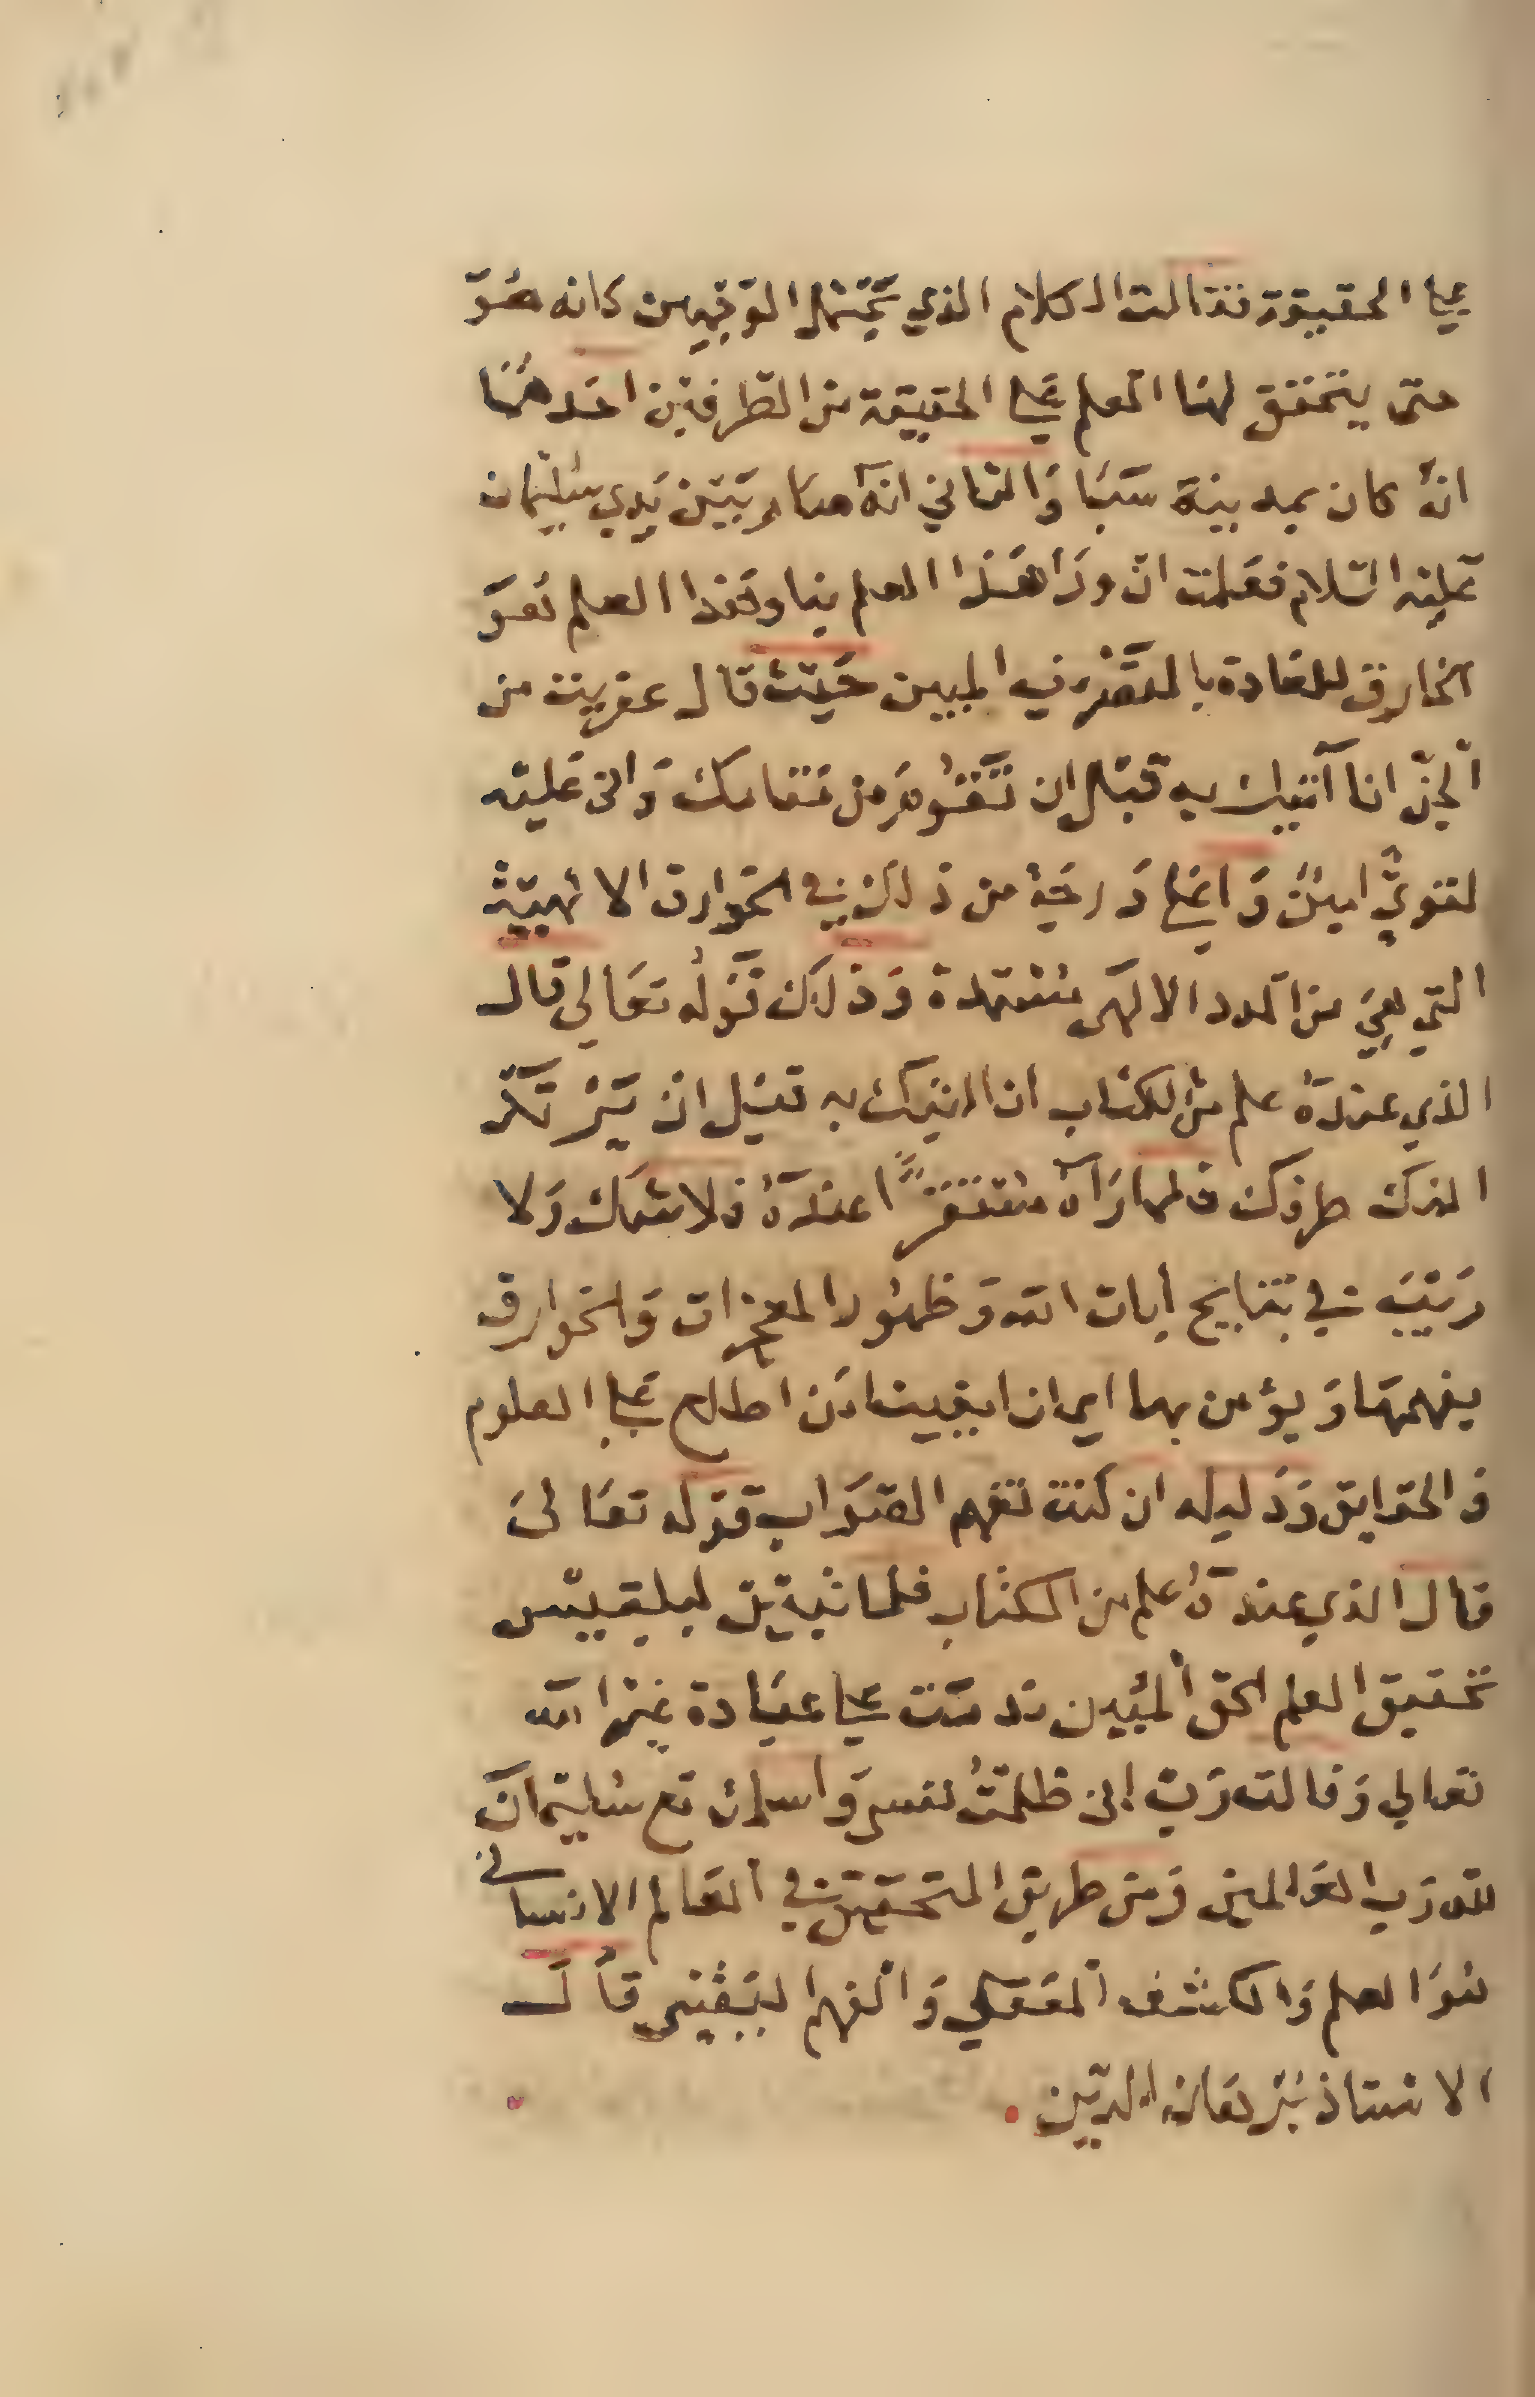 على الحقيقة فقالت الكلام الذي يحتمل الوجهين كانه هو
حتى يتحقق لها العلم على الحقيقة من الطرفين احدهما
انه كان بمدينة سبا والثاني انه صار بين يدي سليمان
عليه السلام فعلمت ان ورا هذا العلم بنا وهذا العلم هو
الخارق للعادة بالتصريف المبين حيث قال عفريت من
الجن انا آتيك به قبل ان تقوم من مقامك واني عليه
لقوي امين واعلى درجة من ذلك في الخوارق الالهية
التي هي من المدد الالهي مستمدة وذلك قوله تعالى قال
الذي عنده علم من الكتاب انا اتيك به قبل ان يرتد
اليك طرفك فلما راه مستقرًا عنده فلا شك ولا
ريب في نتايج ايات الله وظهور المعجزات والخوارق
يفهمها ويؤمن بها ايمانا يقينا من اطلع على العلوم
والحقايق ودليله ان كنت تفهم الصواب قوله تعالى
قال الذي عنده علم من الكتاب فلما تبين لبلقيس
تحقيق العلم الحق المبين ندمت على عبادة غير الله
تعالى وقالت رب اني ظلمت نفسي واسلمت مع سليمان
لله رب العالمين ومن طريق التحقيق في العالم الانساني
هو العلم والكشف العقلي والفهم اليقيني قال
الاستاذ برهان الدين